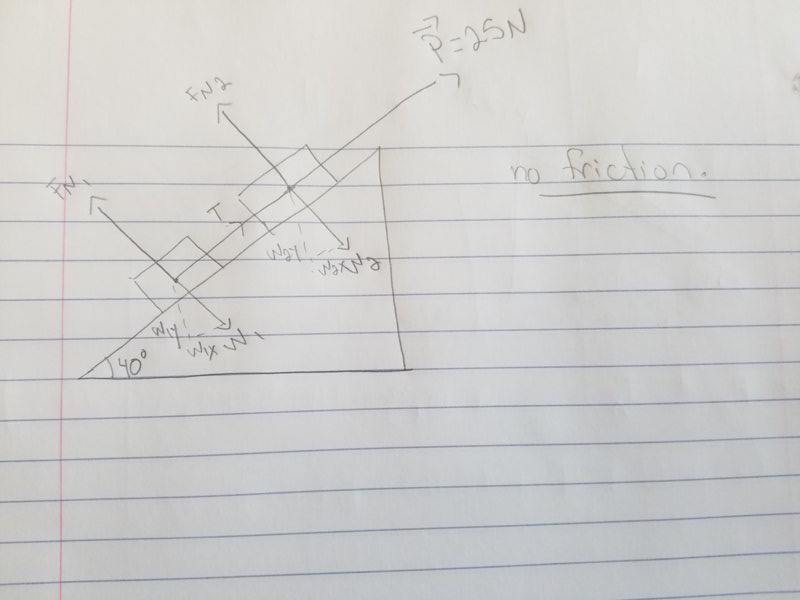 P=25N
FN2
no friction.
FN1
T
T
W2y
W2x W2
W1y
W1x W1
40°